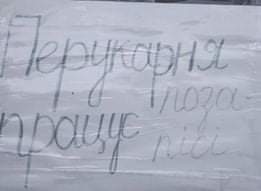 Перукарня
працує поза-
пісі